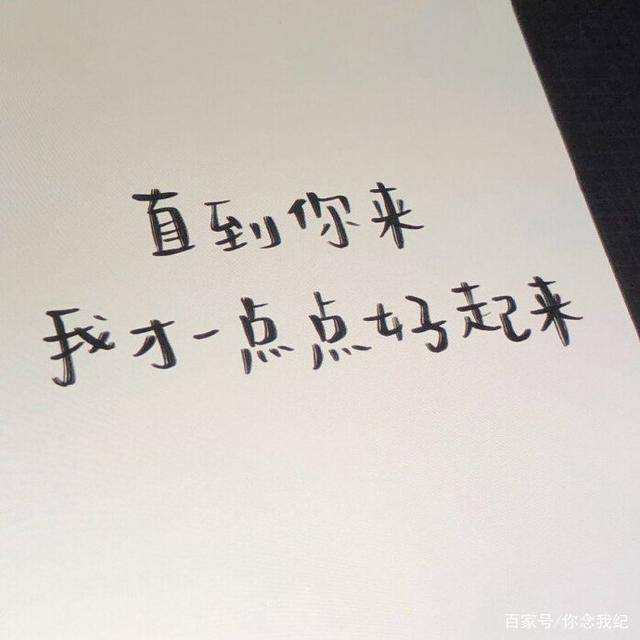 直到你来
我才一点点好起来
百家号/你念我纪